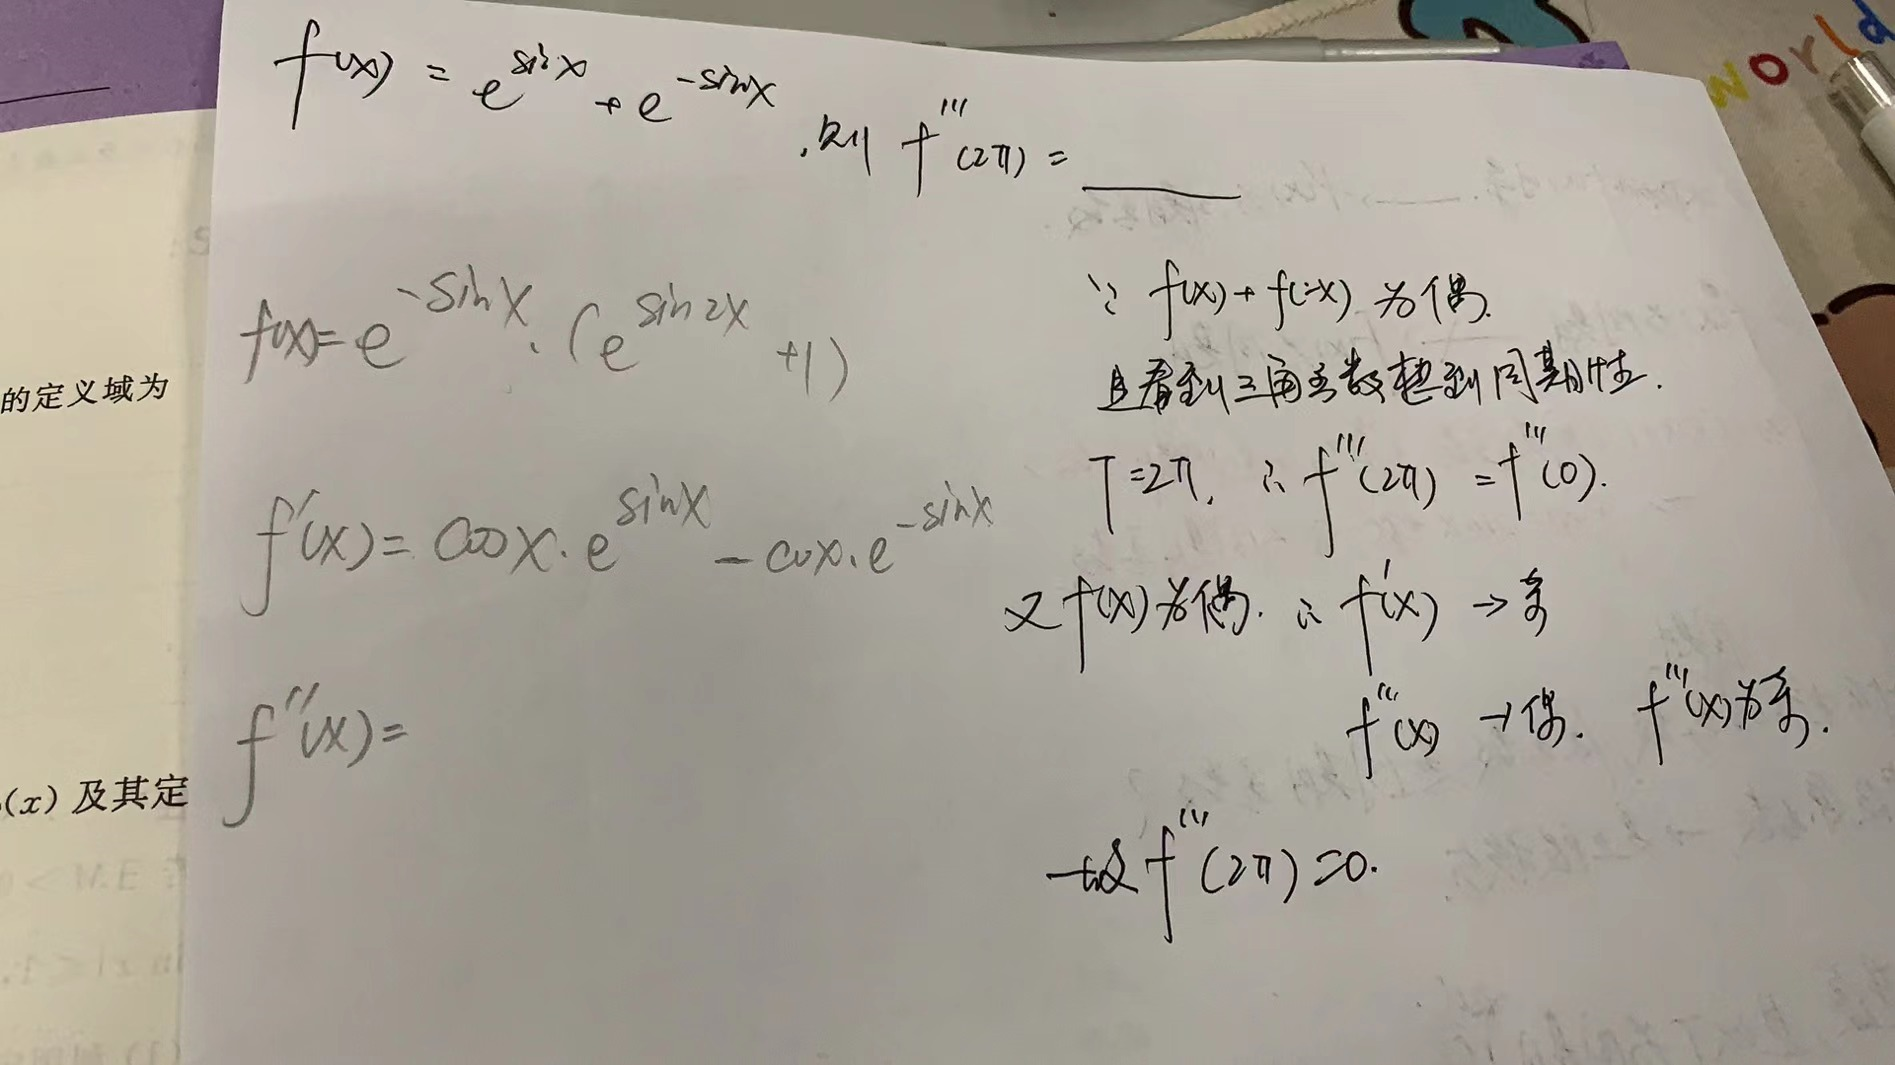 f(x) = e^{sinx} + e^{-sinx}, 则 f'''(2π) = ____
f(x)= e^{-sinx}·(e^{sin2x}+1)
f'(x)= cosx·e^{sinx} - cosx·e^{-sinx}
f''(x)=
∵ f(x)+f(-x) 为偶.
且看到三角函数想到周期性.
T=2π, ∴ f'''(2π) = f'''(0).
又 f(x) 为偶. ∴ f'(x) → 奇
f'''(x) → 偶. f'''(x)为奇.
故 f'''(2π)=0.
的定义域为
(x)及其定
world